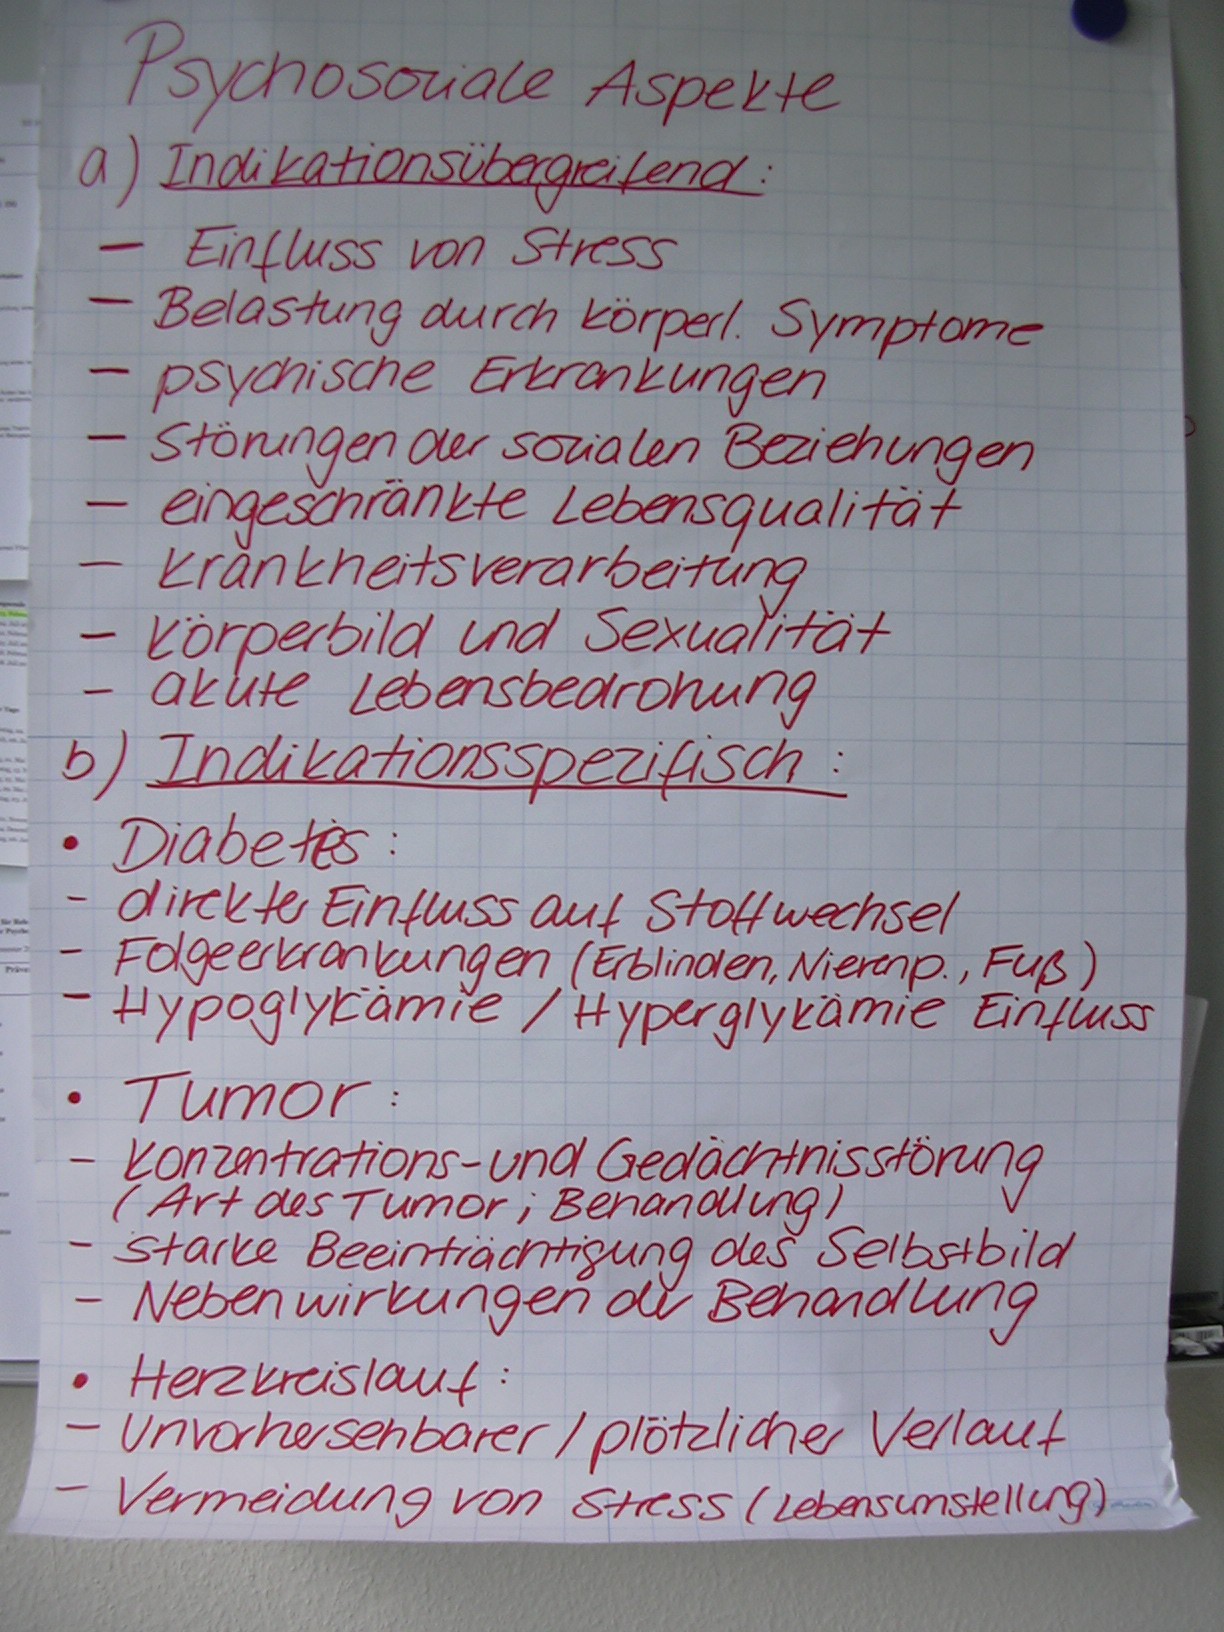 Psychosoziale Aspekte
a) Indikationsübergreifend:
- Einfluss von Stress
- Belastung durch körperl. Symptome
- psychische Erkrankungen
- Störungen der sozialen Beziehungen
- eingeschränkte Lebensqualität
- Krankheitsverarbeitung
- Körperbild und Sexualität
- akute Lebensbedrohung
b) Indikationsspezifisch:
• Diabetes:
- direkter Einfluss auf Stoffwechsel
- Folgeerkrankungen (Erblinden, Nierenp., Fuß)
- Hypoglykämie / Hyperglykämie Einfluss
• Tumor:
- Konzentrations- und Gedächtnisstörung
(Art des Tumor; Behandlung)
- starke Beeinträchtigung des Selbstbild
- Nebenwirkungen der Behandlung
• Herzkreislauf:
- Unvorhersehbarer / plötzlicher Verlauf
- Vermeidung von Stress (Lebensumstellung)